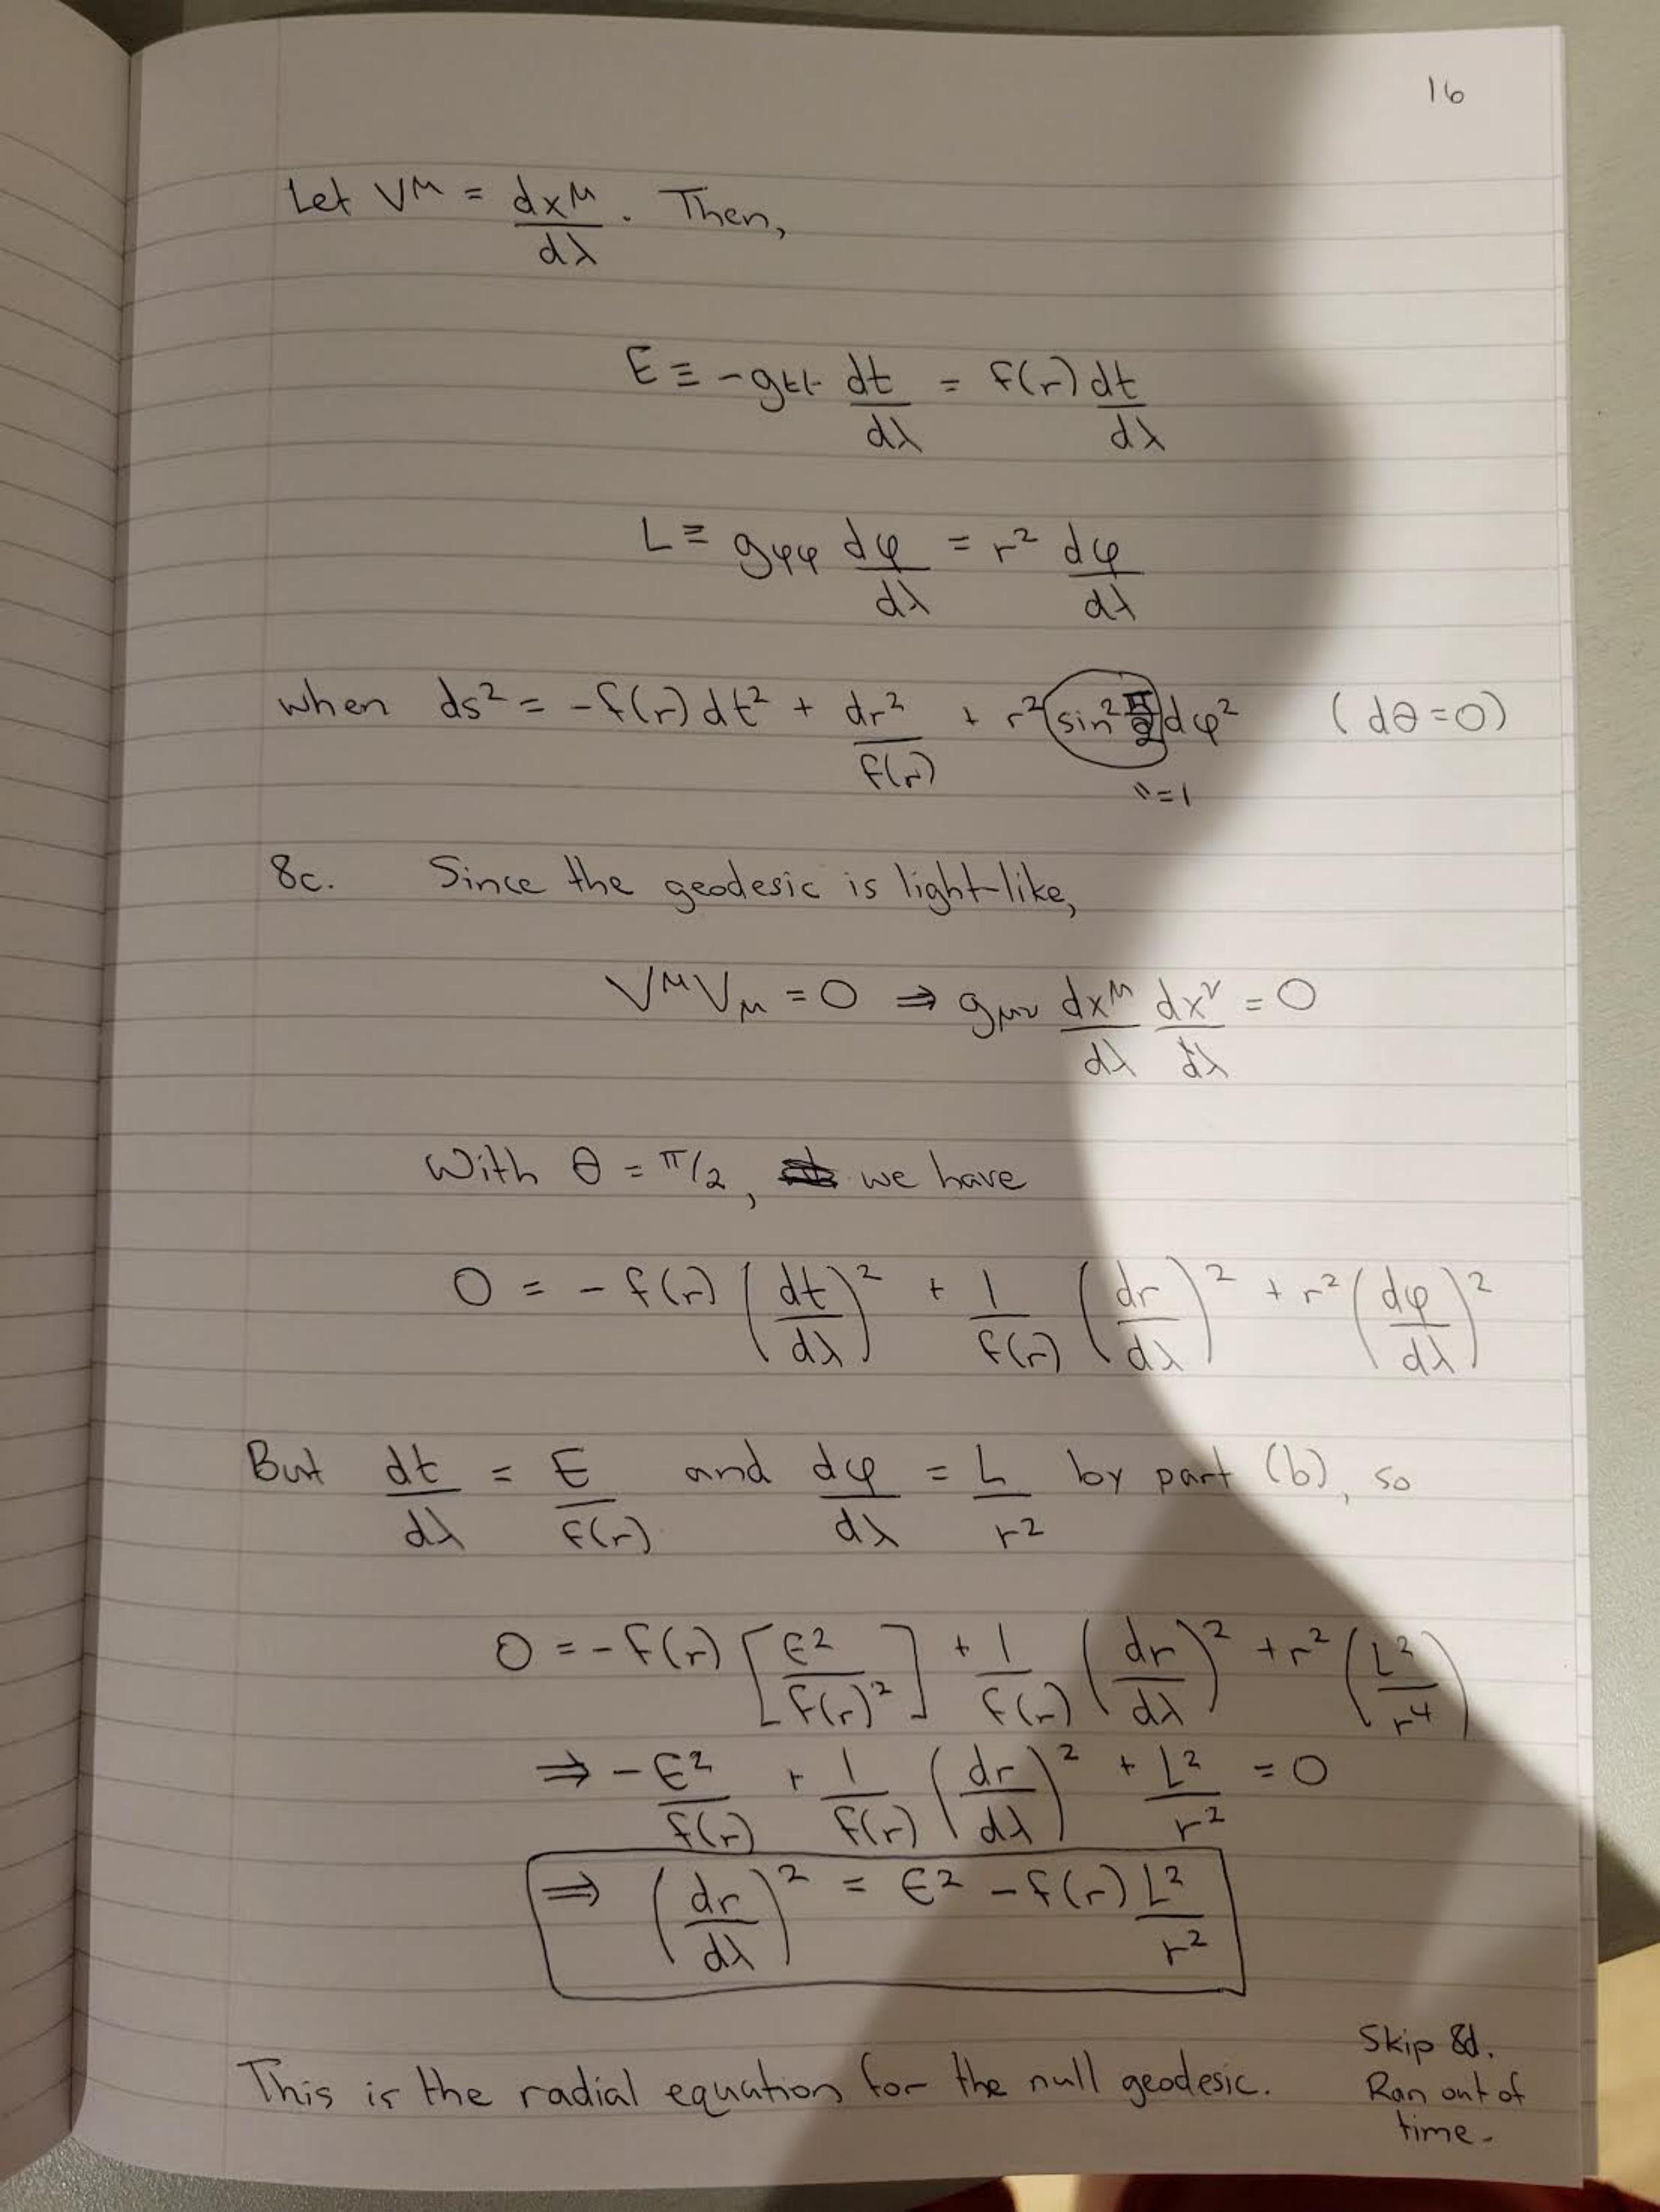 16
Let V^μ = dx^μ/dλ. Then,
E ≡ -g_tt dt/dλ = f(r) dt/dλ
L ≡ g_φφ dφ/dλ = r² dφ/dλ
when ds² = -f(r)dt² + dr²/f(r) + r² sin² π/2 dφ² (dθ=0)
"=1
8c. Since the geodesic is light-like,
V^μ V_μ = 0 ⇒ g_μν dx^μ/dλ dx^ν/dλ = 0
With θ = π/2, we have
0 = -f(r) (dt/dλ)² + 1/f(r) (dr/dλ)² + r² (dφ/dλ)²
But dt/dλ = E/f(r) and dφ/dλ = L/r² by part (b), so
0 = -f(r) [E²/f(r)²] + 1/f(r) (dr/dλ)² + r² (L²/r⁴)
⇒ -E²/f(r) + 1/f(r) (dr/dλ)² + L²/r² = 0
⇒ (dr/dλ)² = E² - f(r) L²/r²
This is the radial equation for the null geodesic.
Skip 8d.
Ran out of
time.